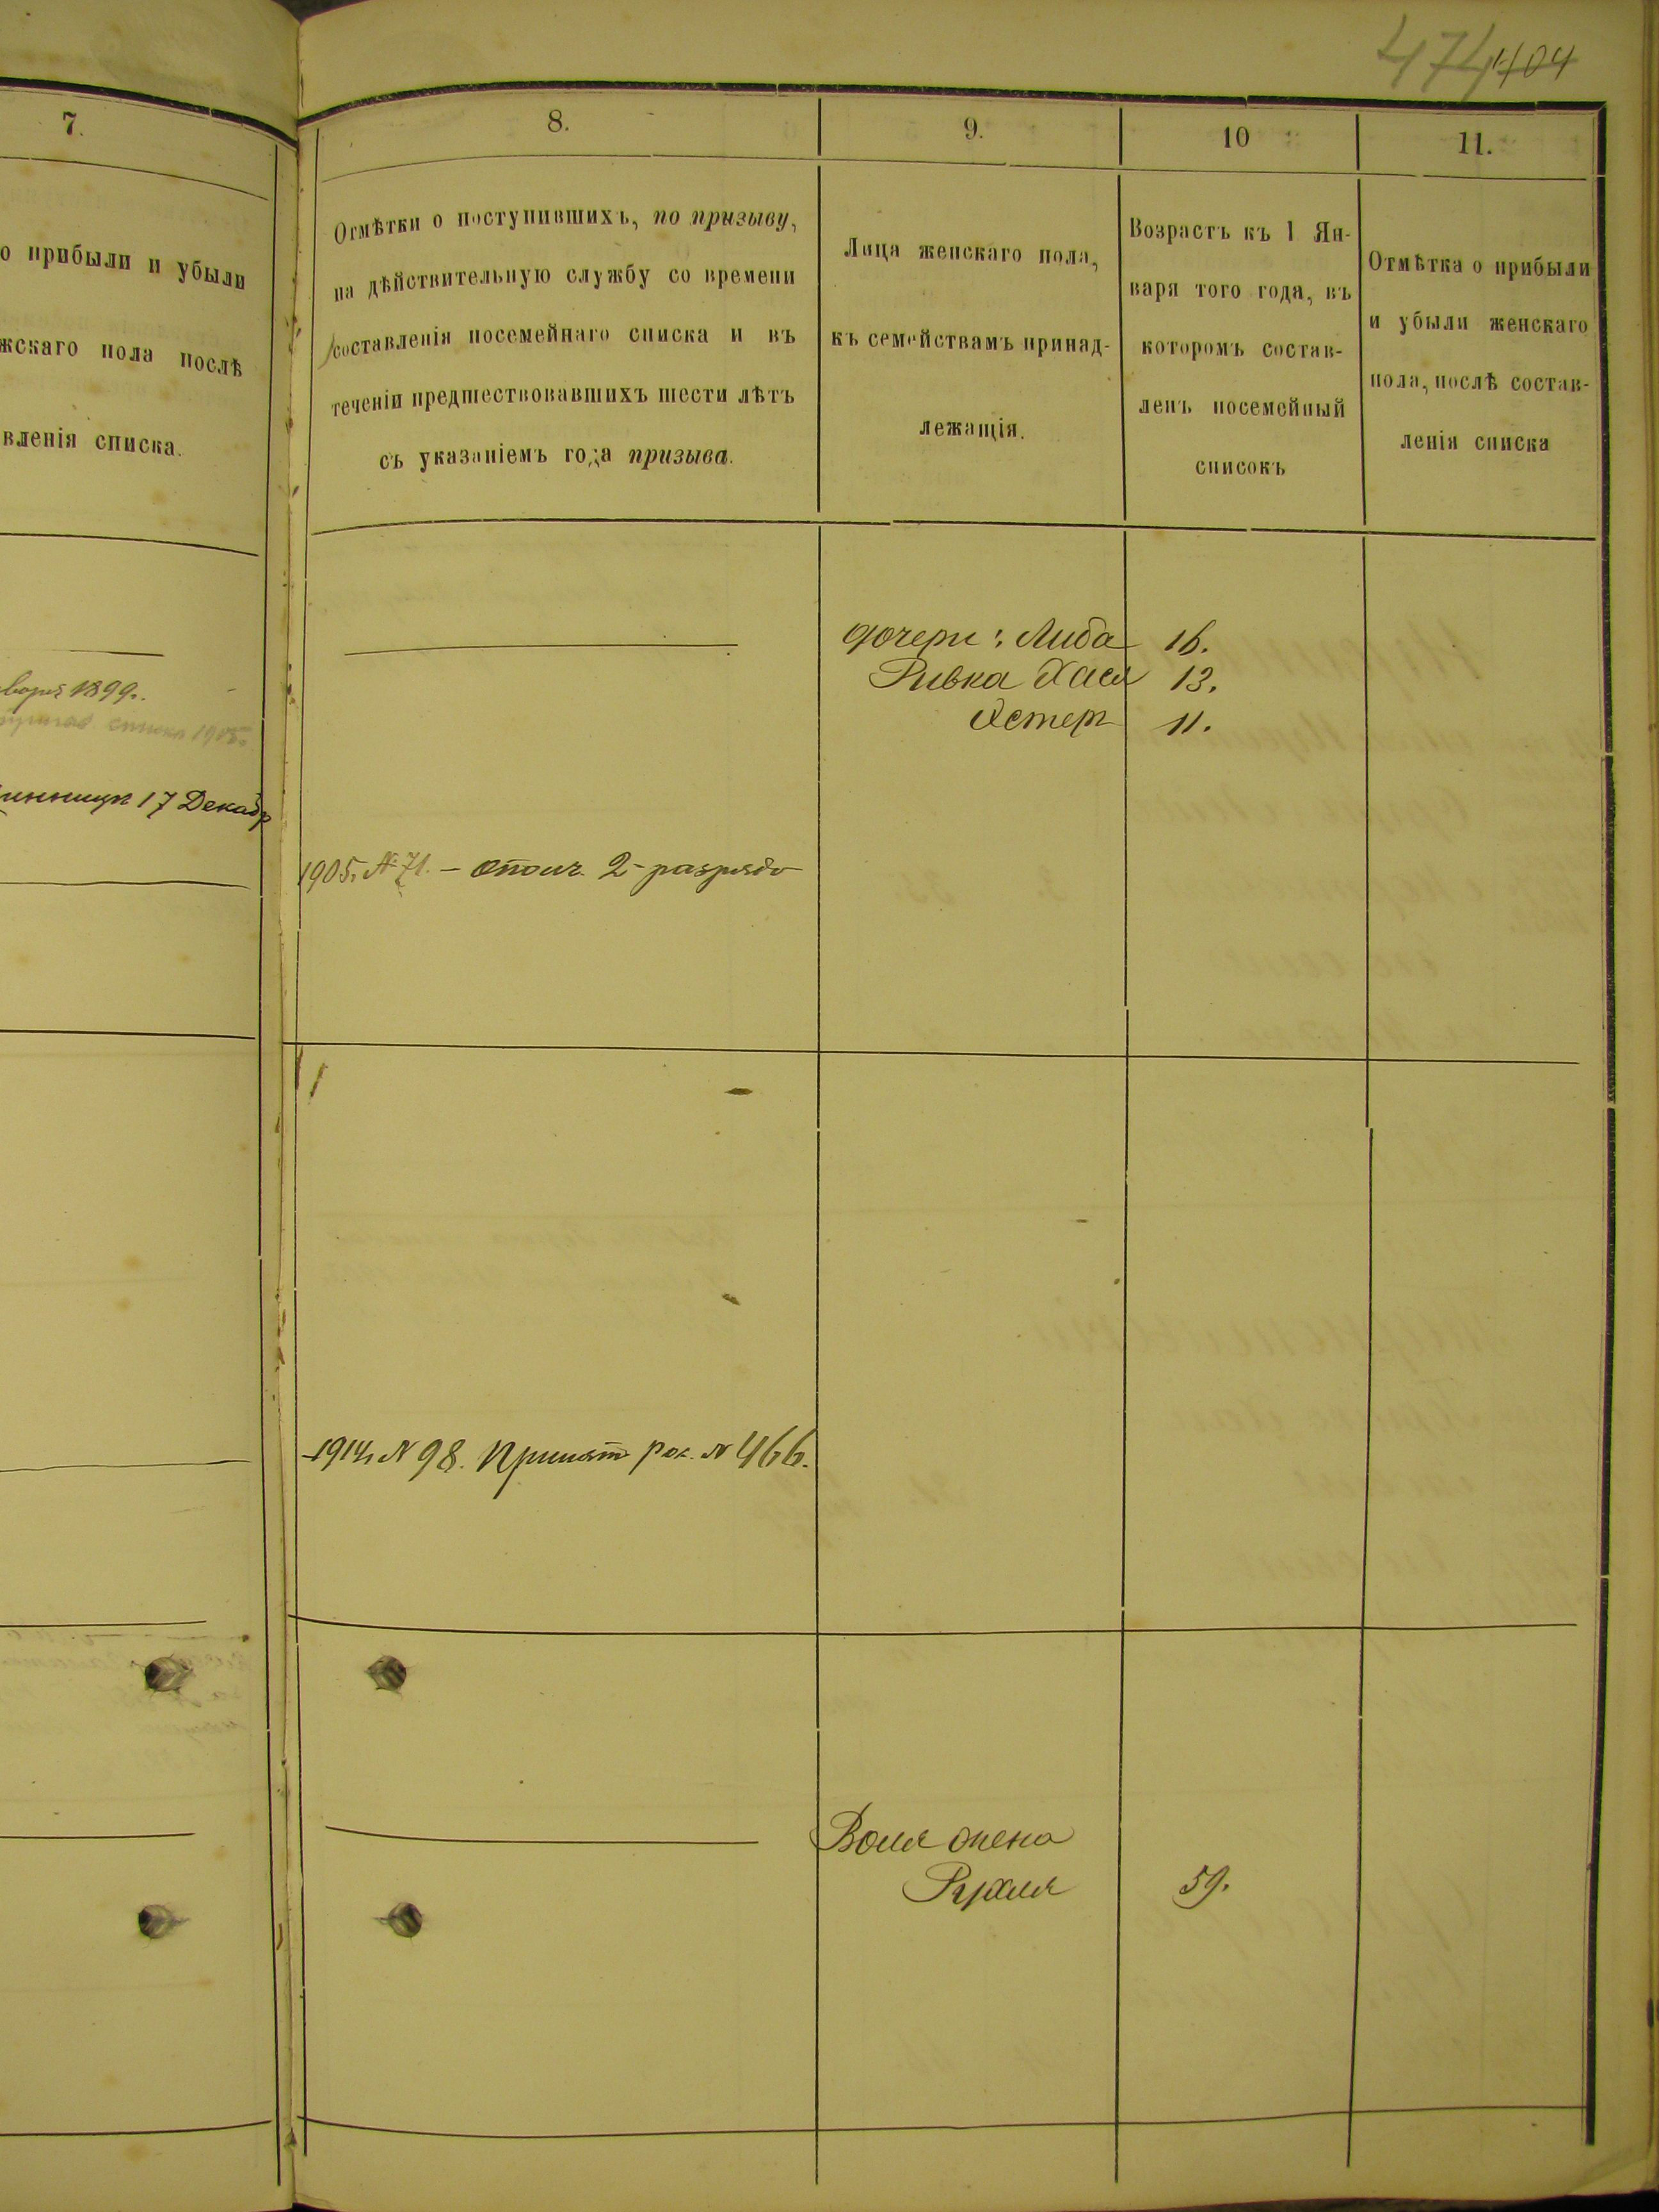 474 404
7.
о прибыли и убыли
жскаго пола послѣ
вленія списка.
варя 1899г.
списка 1905г.
инницы 17 Декабр
8.
Отмѣтки о поступившихъ, по призыву,
на дѣйствительную службу со времени
составленія посемейнаго списка и въ
теченіи предшествовавшихъ шести лѣтъ
съ указаніемъ года призыва.
1905г. № 71. – ополч. 2 – разряда
1914г. № 98. Принятъ рос. № 466.
9.
Лица женскаго пола,
къ семействамъ принад-
лежащія.
дочери: Либа
Ривка Хася
Эстеръ
Вола жена
Рухля
10
Возрастъ къ 1 Ян-
варя того года, въ
которомъ состав-
ленъ посемейный
списокъ
16.
13.
11.
59.
11.
Отмѣтка о прибыли
и убыли женскаго
пола, послѣ состав-
ленія списка